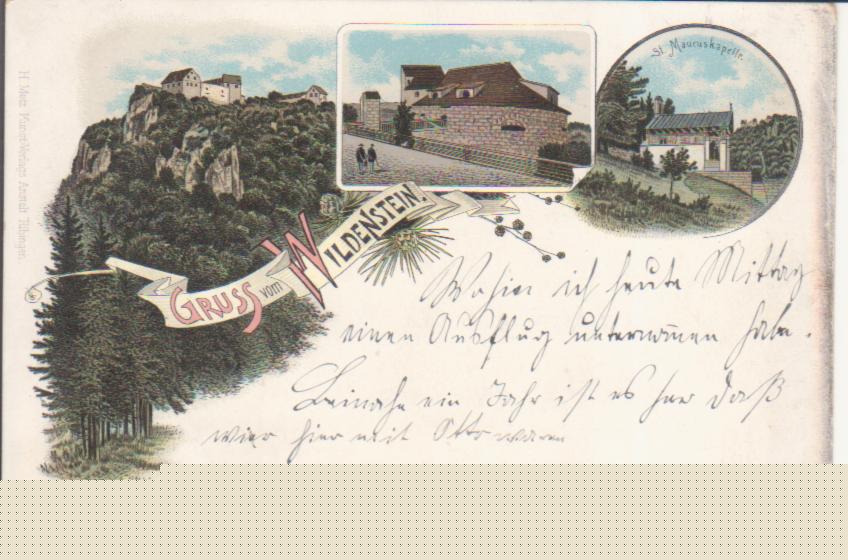 St. Mauruskapelle.
GRUSS vom WILDENSTEIN!
Wohin ich heute Mittag
einen Ausflug unternom̅en habe.
Beinahe ein Jahr ist es her daß
wir hier mit Otto waren
H. Metz Kunst-Verlags Anstalt Tübingen.